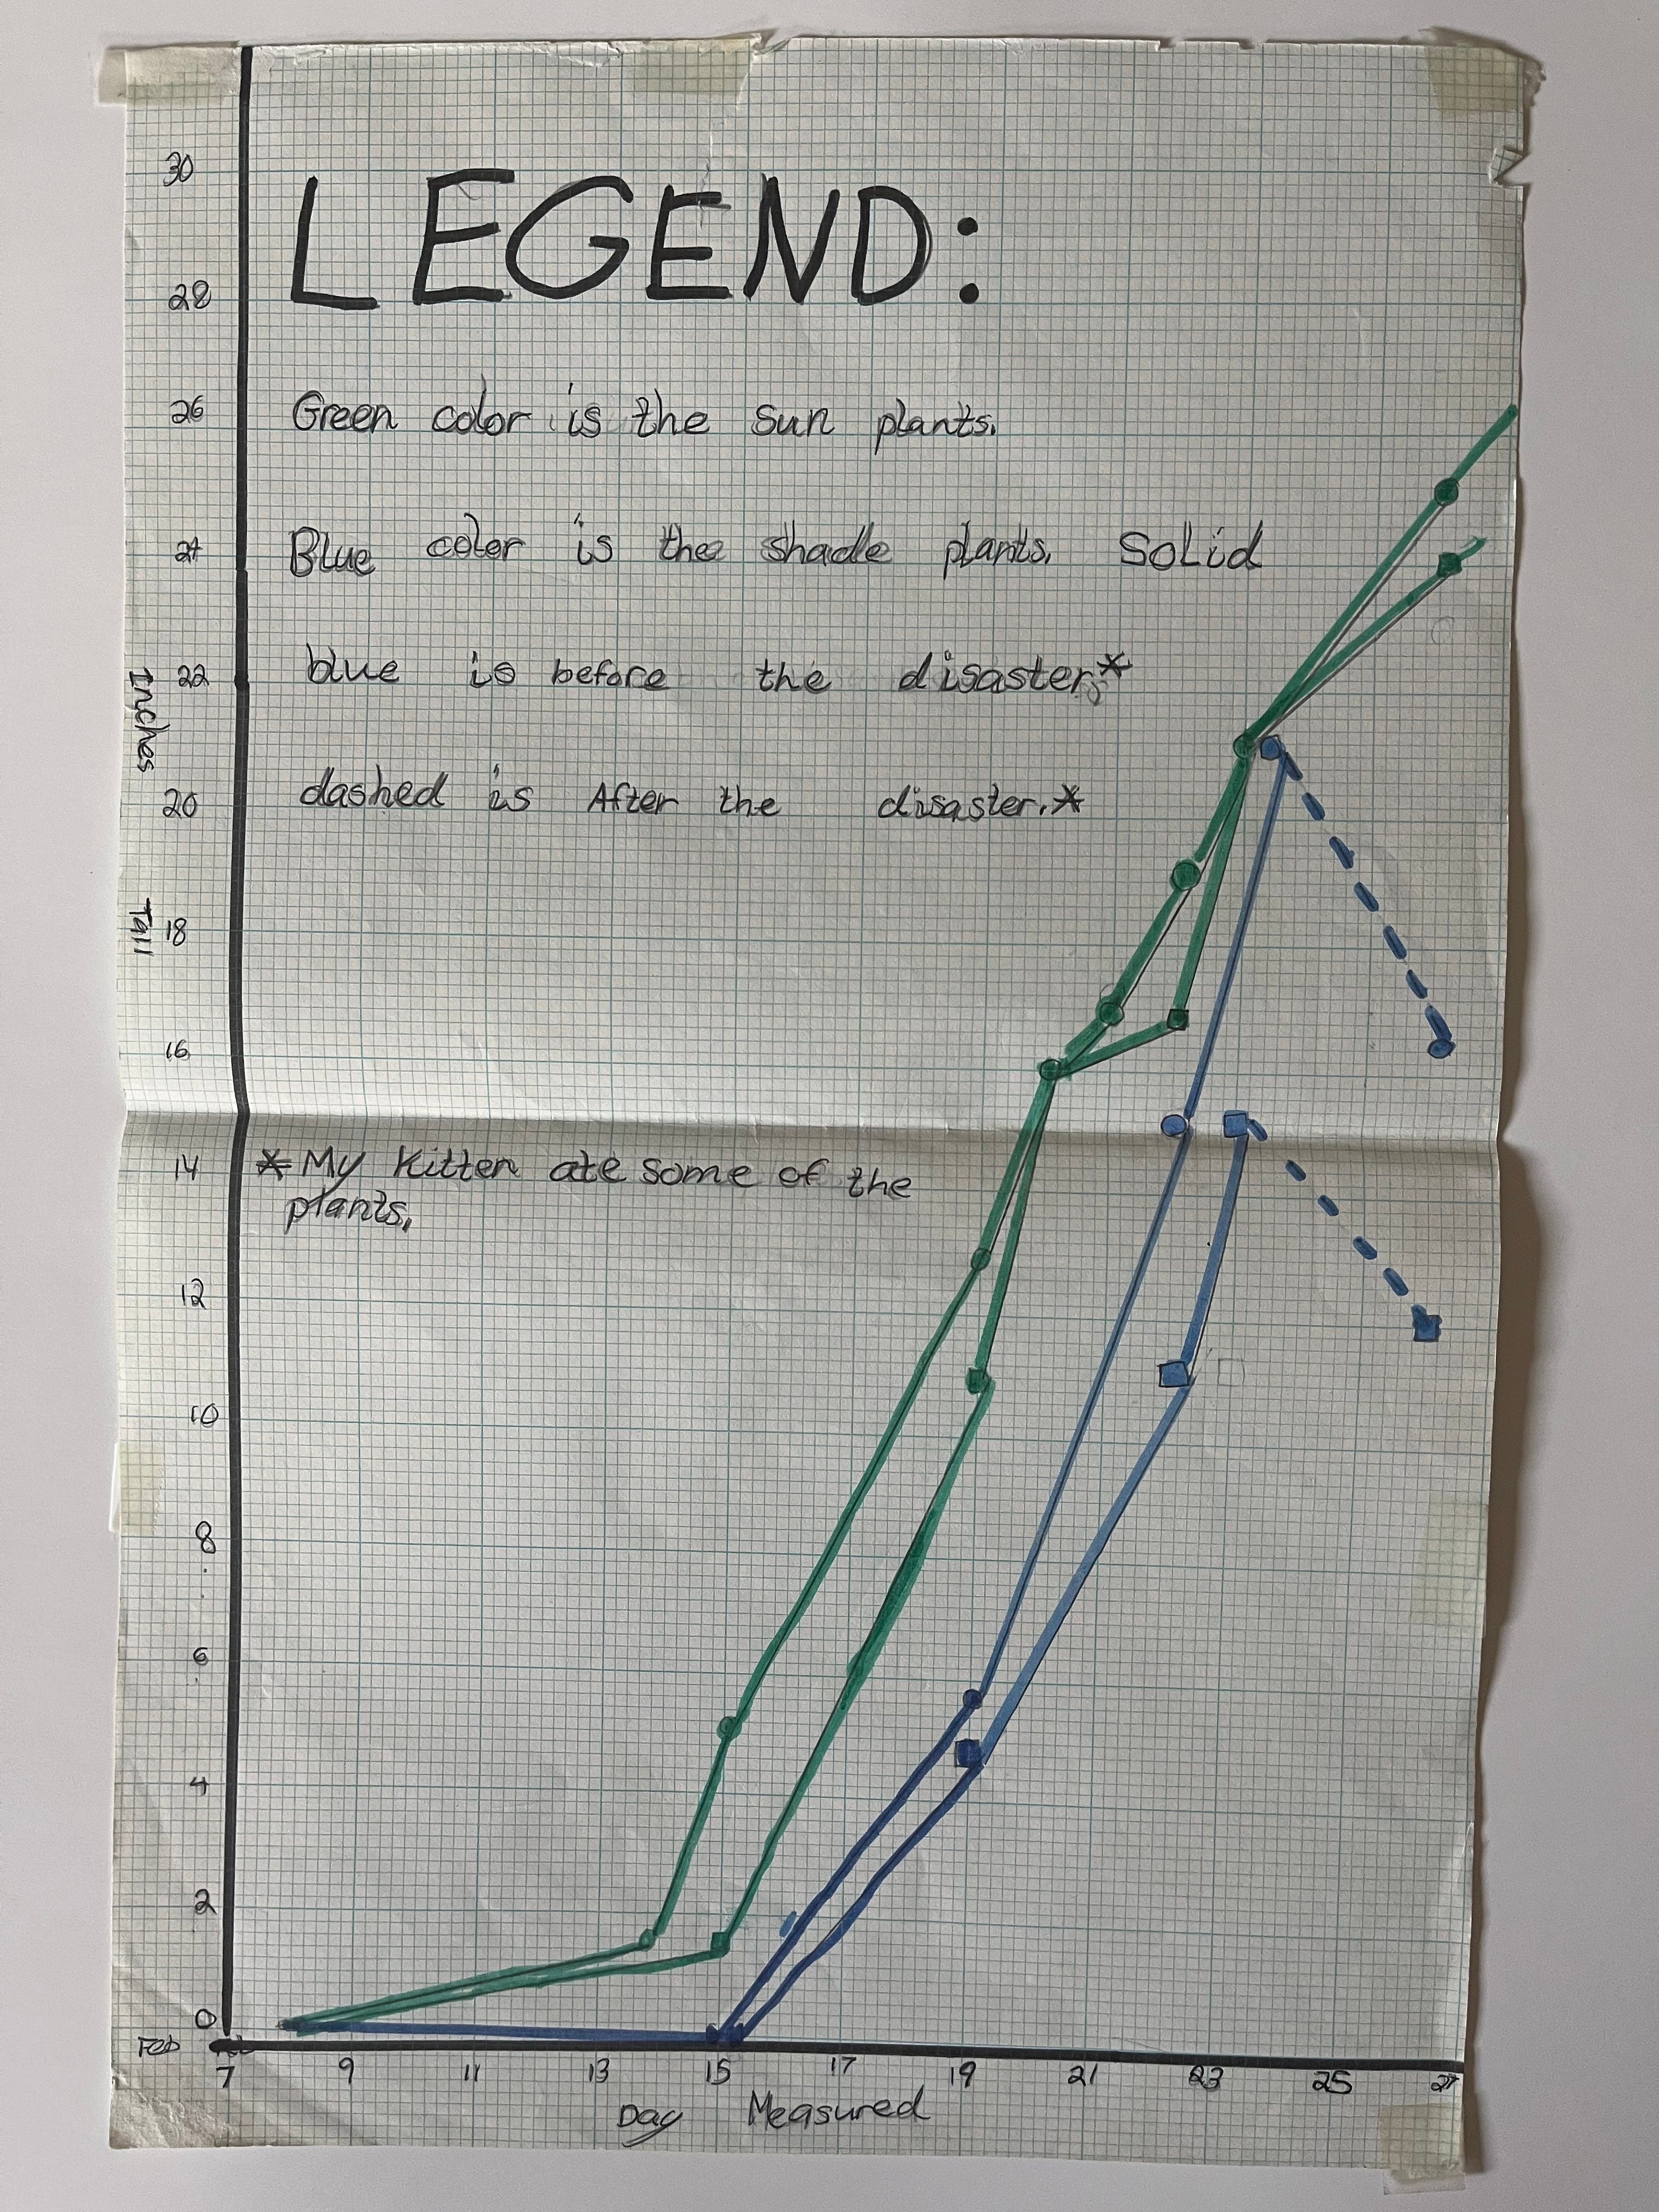 30
LEGEND:
28
26
Green color is the sun plants.
24
Blue color is thee shade plants. Solid
22
blue is before the disaster.*
Inches
20
dashed is After the disaster.*
18
Tall
16
14
*My kitten ate some of the
plants.
12
10
8
6
4
2
0
Feb
7 9 11 13 15 17 19 21 23 25 27
Day Measured